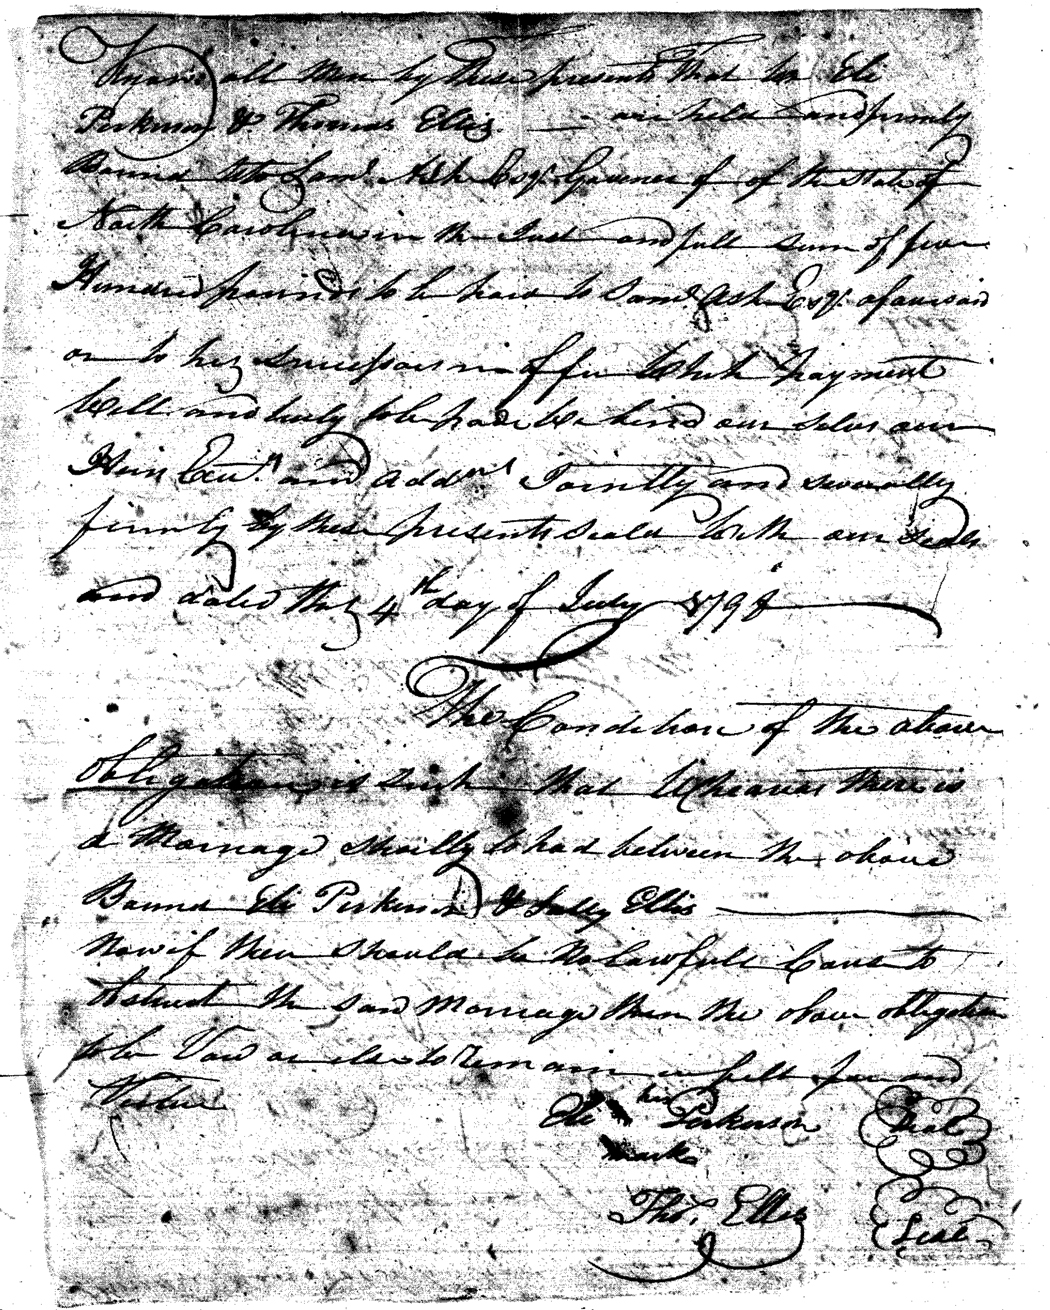 Know all Men by these presents That we Eli
Perkinson & Thomas Ellis — are held and firmly
Bound to Saml. Ash Esqr. Governor of of the State of
North Carolina in the Just and full sum of five
Hundred pounds to be paid to Saml. Ash Esqr. aforesaid
or to his successors in office Which payment
Well and truly to be paid We bind our selves our
Heirs Exu.rs and addmrs Jointly and severally
firmly by these presents Seald With our Seals
and dated this 4th day of July 1798
The Condition of the above
obligation is Such that Wheareas there is
a Marriage shortly to had between the above
Bound Eli Perkinson & Sally Ellis
Now if there should be no lawfull Cause to
obstruct the said Marriage then the above obligation
to be Void or else to Remain in full force and
Virtue
his
Eli Perkinson Seal
mark
Thos. Ellis Seal